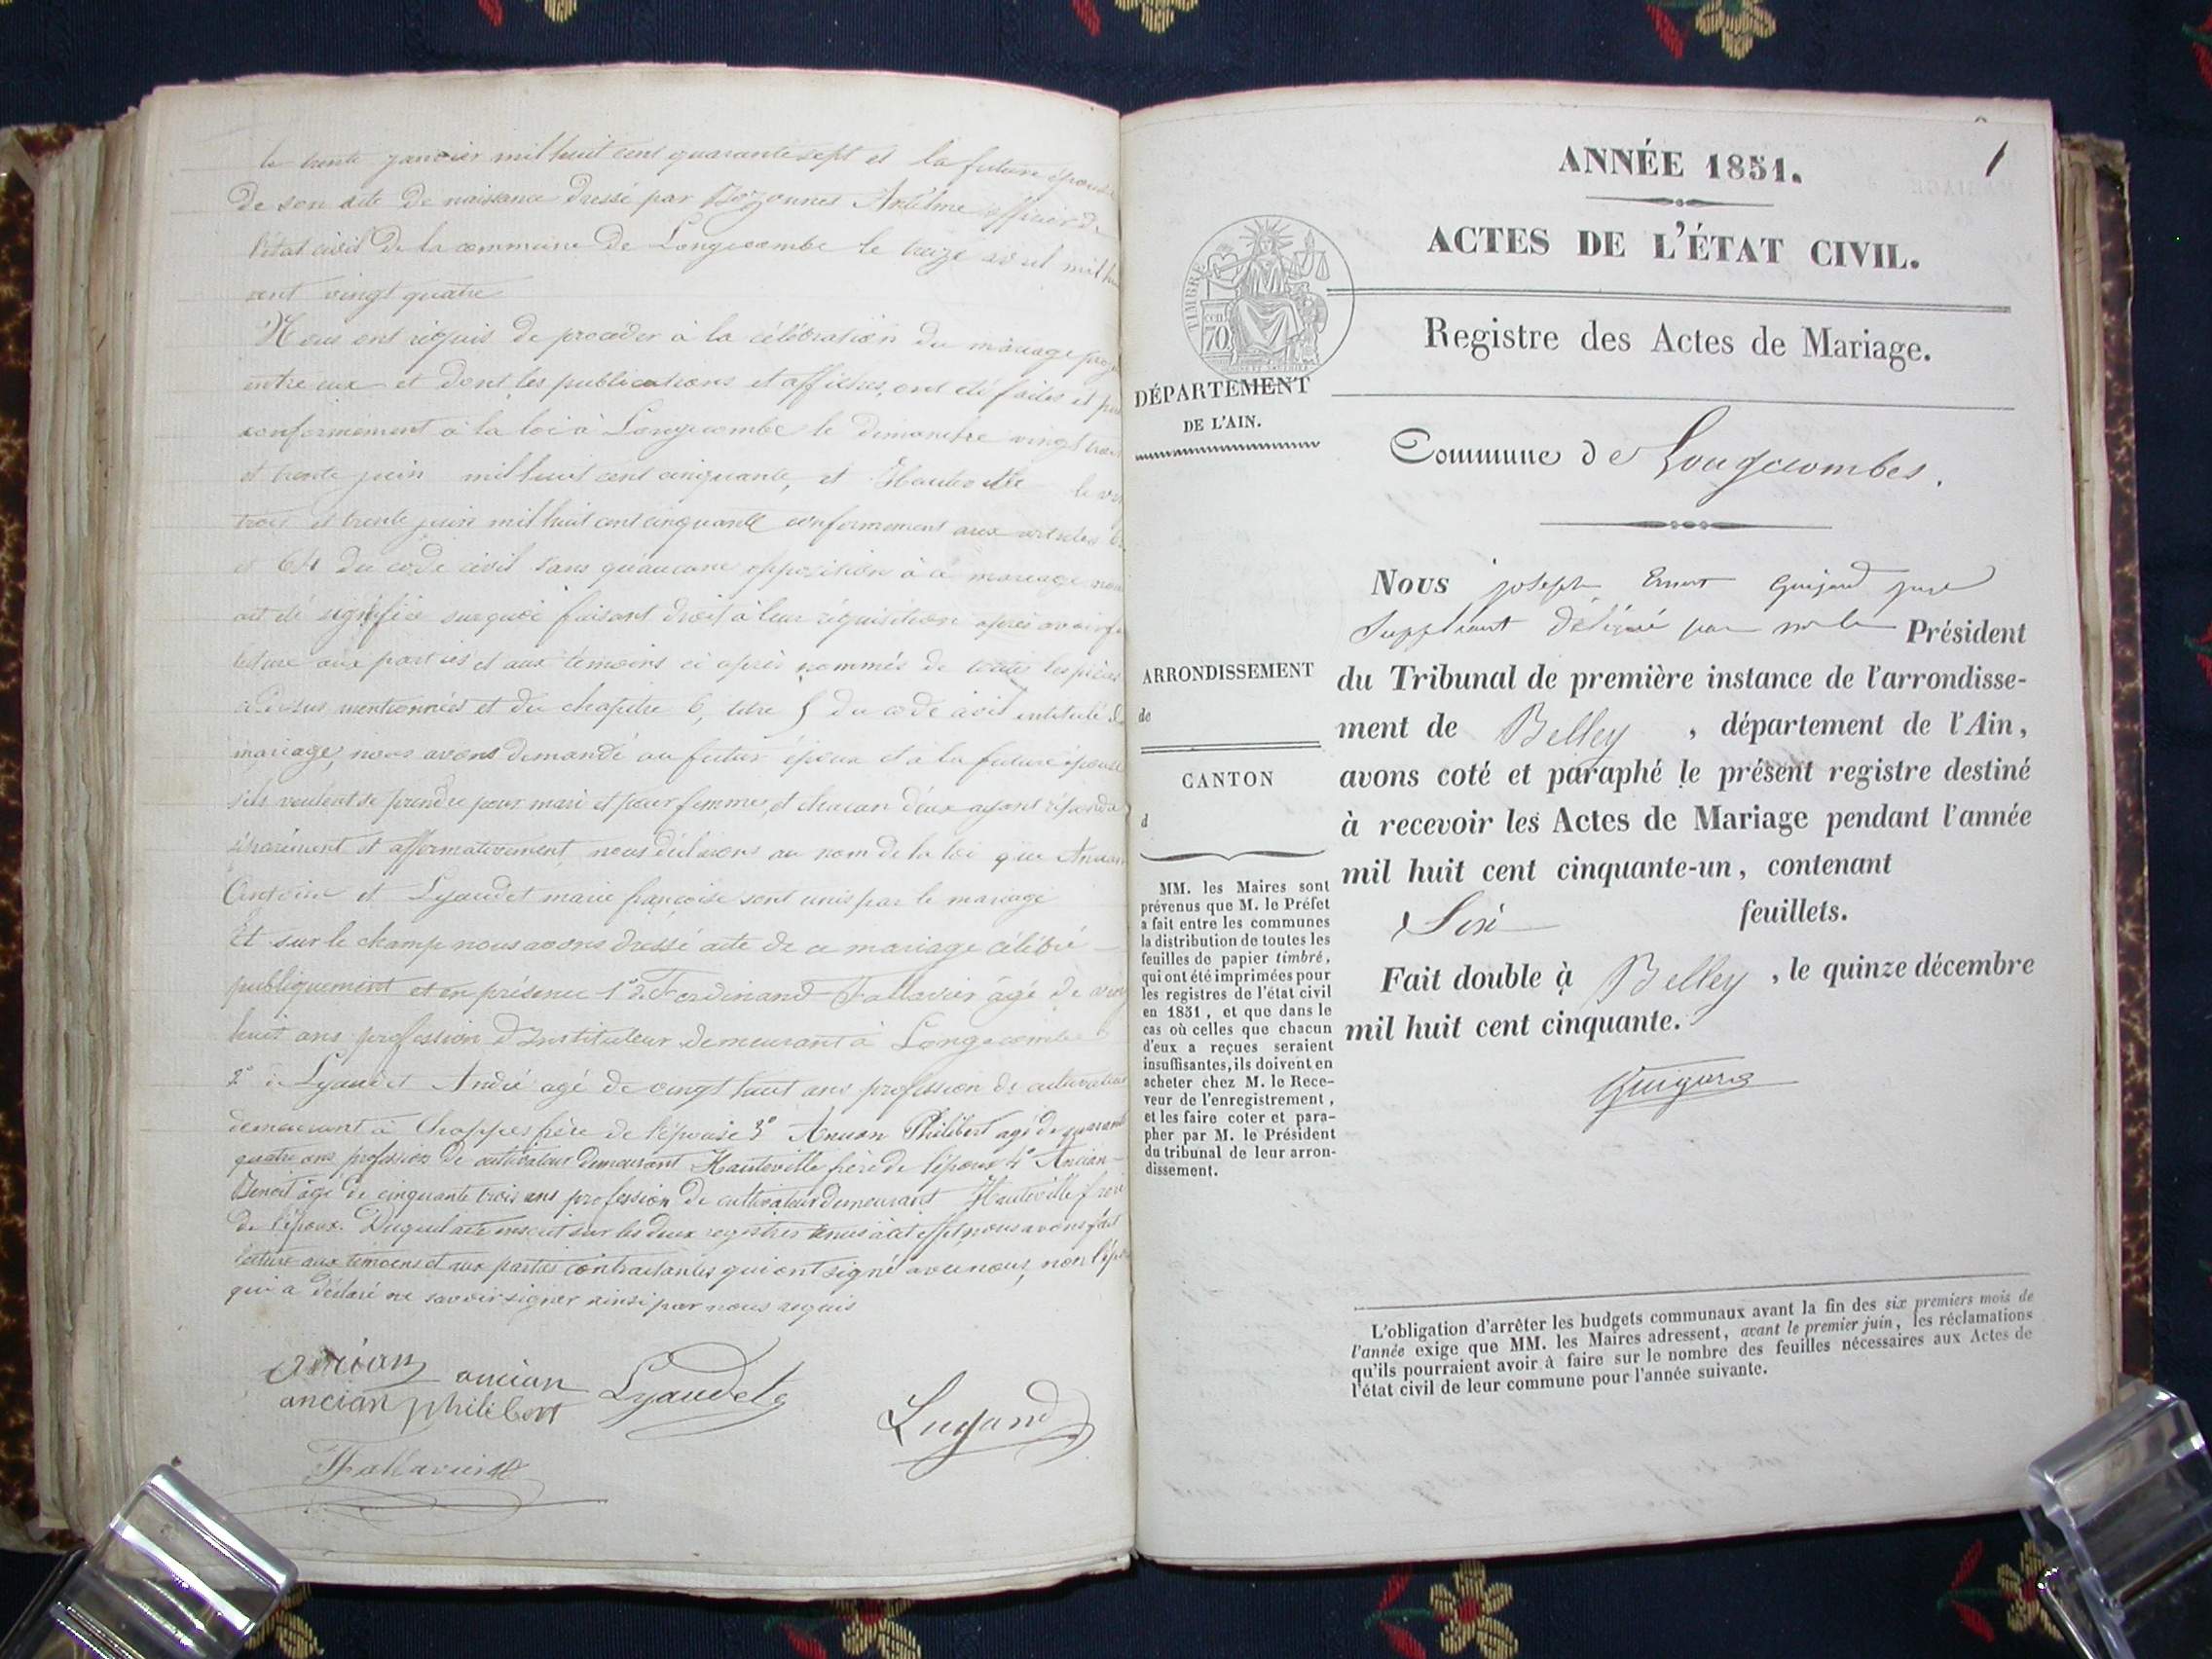 le trente janvier mil huit cent quarante sept et la future épouse
de son acte de naissance dressé par Anselme officier de
l'état civil de la commune de Longecombe le treize avril mil
cent vingt quatre
Nous ont requis de proceder à la célébration du mariage
entre eux et dont les publications et affiches, ont été faites et
conformement à la loi à Longecombe le dimanche vingt trois
et trente juin mil huit cent cinquante, et Hauteville le
trois et trente juin mil huit cent cinquante conformement aux articles
et 64 du code civil sans qu'aucune opposition à ce mariage nous
ait été signifiée surquoi faisant droit à leur réquisition après avoir
lecture aux parties et aux témoins ci après nommés de toutes les pièces
ci dessus mentionnées et du chapitre 6, titre 5 du code civil intitulé du
mariage, nous avons demandé au futur époux et à la future épouse
s'ils veulent se prendre pour mari et pour femme, et chacun d'eux ayant répondu
séparément et affirmativement, nous déclarons au nom de la loi que Ancian
Antoine et Lyaudet marie françoise sont unis par le mariage
Et sur le champ nous avons dressé acte de ce mariage célébré
publiquement et en présence 1° de Ferdinand Fallavier âgé de
huit ans profession d'Instituteur demeurant à Longecombe
2° de Lyaudet André agé de vingt huit ans profession de cultivateur
demeurant à Chappes frère de l'épouse 3° Ancian Philibert agé de quarante
quatre ans profession de cultivateur demeurant Hauteville frère de l'époux 4° Ancian
Benoît âgé de cinquante trois ans profession de cultivateur demeurant Hauteville frère
de l'époux. Duquel acte inscrit sur les deux registres tenus à cet effet nous avons fait
lecture aux témoins et aux parties contractantes qui ont signé avec nous, non
qui a déclaré ne savoir signer ainsi par nous requis
ancian ancian Lyaudet
ancian philibert Lugand
Fallavier
1
ANNÉE 1851.
ACTES DE L'ÉTAT CIVIL.
Registre des Actes de Mariage.
TIMBRE
70 cent
DÉPARTEMENT
DE L'AIN.
Commune de Longecombes.
ARRONDISSEMENT
de
CANTON
d
MM. les Maires sont
prévenus que M. le Préfet
a fait entre les communes
la distribution de toutes les
feuilles de papier timbré,
qui ont été imprimées pour
les registres de l'état civil
en 1851, et que dans le
cas où celles que chacun
d'eux a reçues seraient
insuffisantes, ils doivent en
acheter chez M. le Rece-
veur de l'enregistrement,
et les faire coter et para-
pher par M. le Président
du tribunal de leur arron-
dissement.
Nous joseph Ernest Guigard juge
Suppléant délégué par mr le Président
du Tribunal de première instance de l'arrondisse-
ment de Belley, département de l'Ain,
avons coté et paraphé le présent registre destiné
à recevoir les Actes de Mariage pendant l'année
mil huit cent cinquante-un, contenant
Six feuillets.
Fait double à Belley, le quinze décembre
mil huit cent cinquante.
Guigard
L'obligation d'arrêter les budgets communaux avant la fin des six premiers mois de
l'année exige que MM. les Maires adressent, avant le premier juin, les réclamations
qu'ils pourraient avoir à faire sur le nombre des feuilles nécessaires aux Actes de
l'état civil de leur commune pour l'année suivante.